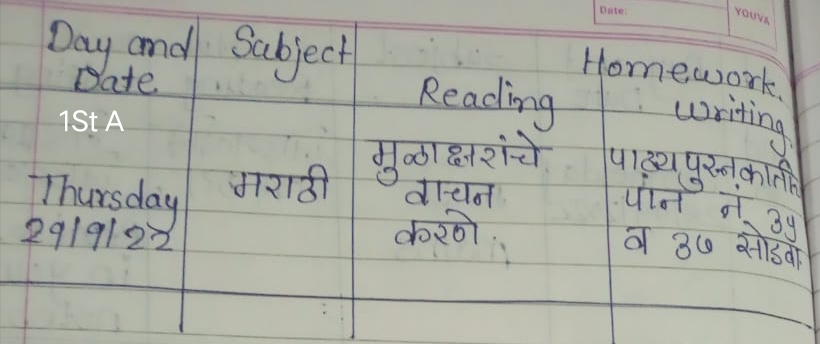 Date:
YOUVA
Day and Date
Subject
Homework.
Reading
writing.
1St A
Thursday
29/9/22
मराठी
मुळाक्षरांचे
वाचन
करणे.
पाठ्यपुस्तकातील
पान नं ३५
व ३७ सोडवा